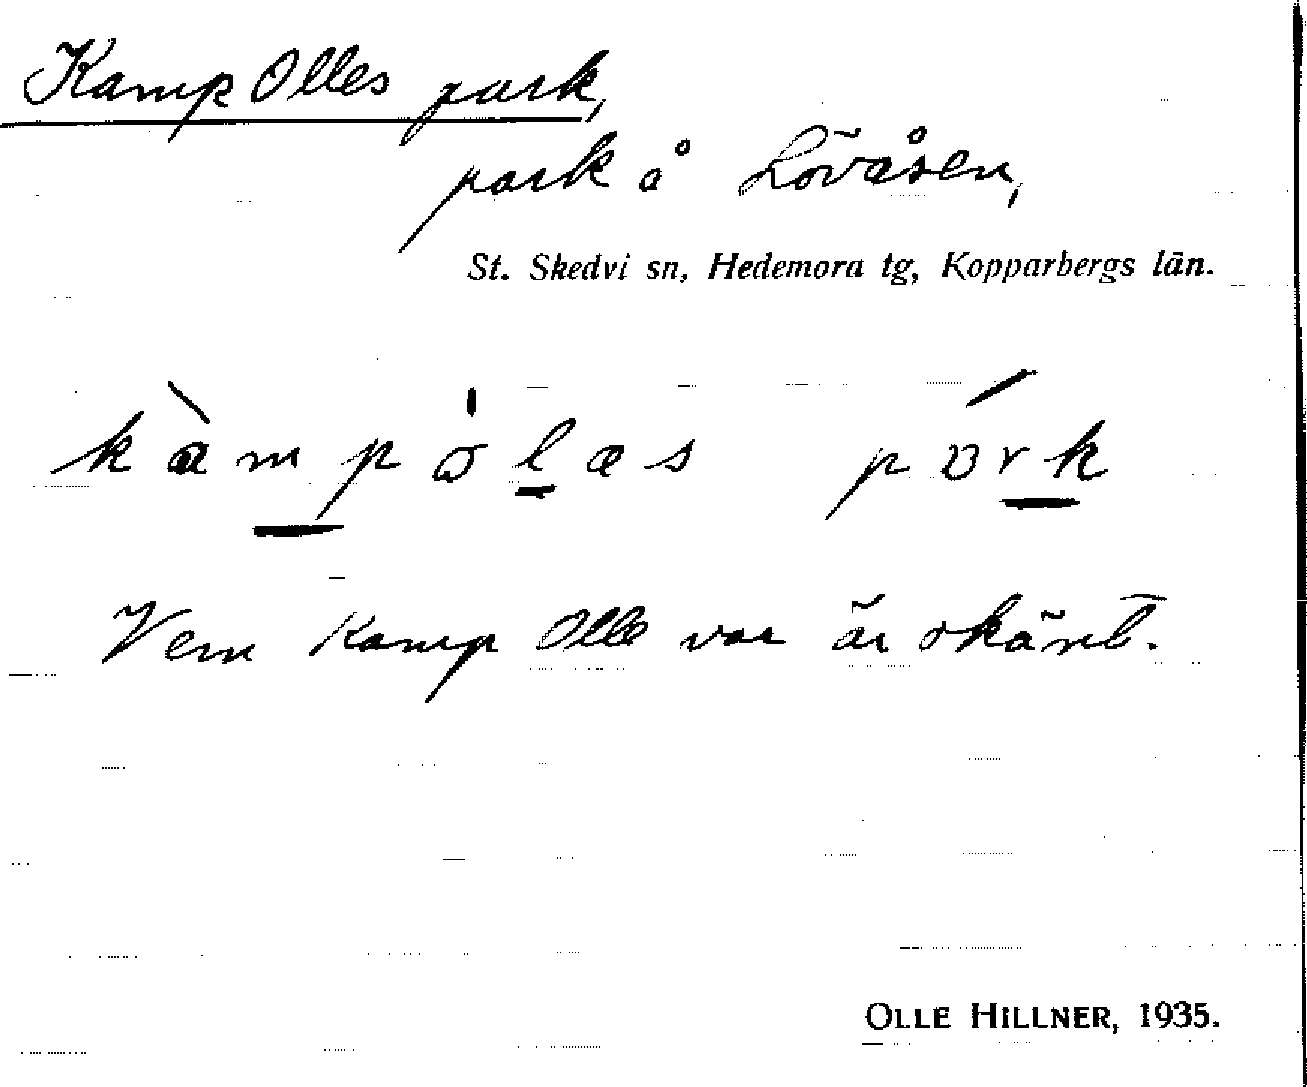 Kamp Olles park,
park å Lövåsen,
St. Skedvi sn, Hedemora tg, Kopparbergs län.
kàmpɷ̀læs pʊ́rk
Vem Kamp Olle var är okänt.
OLLE HILLNER, 1935.